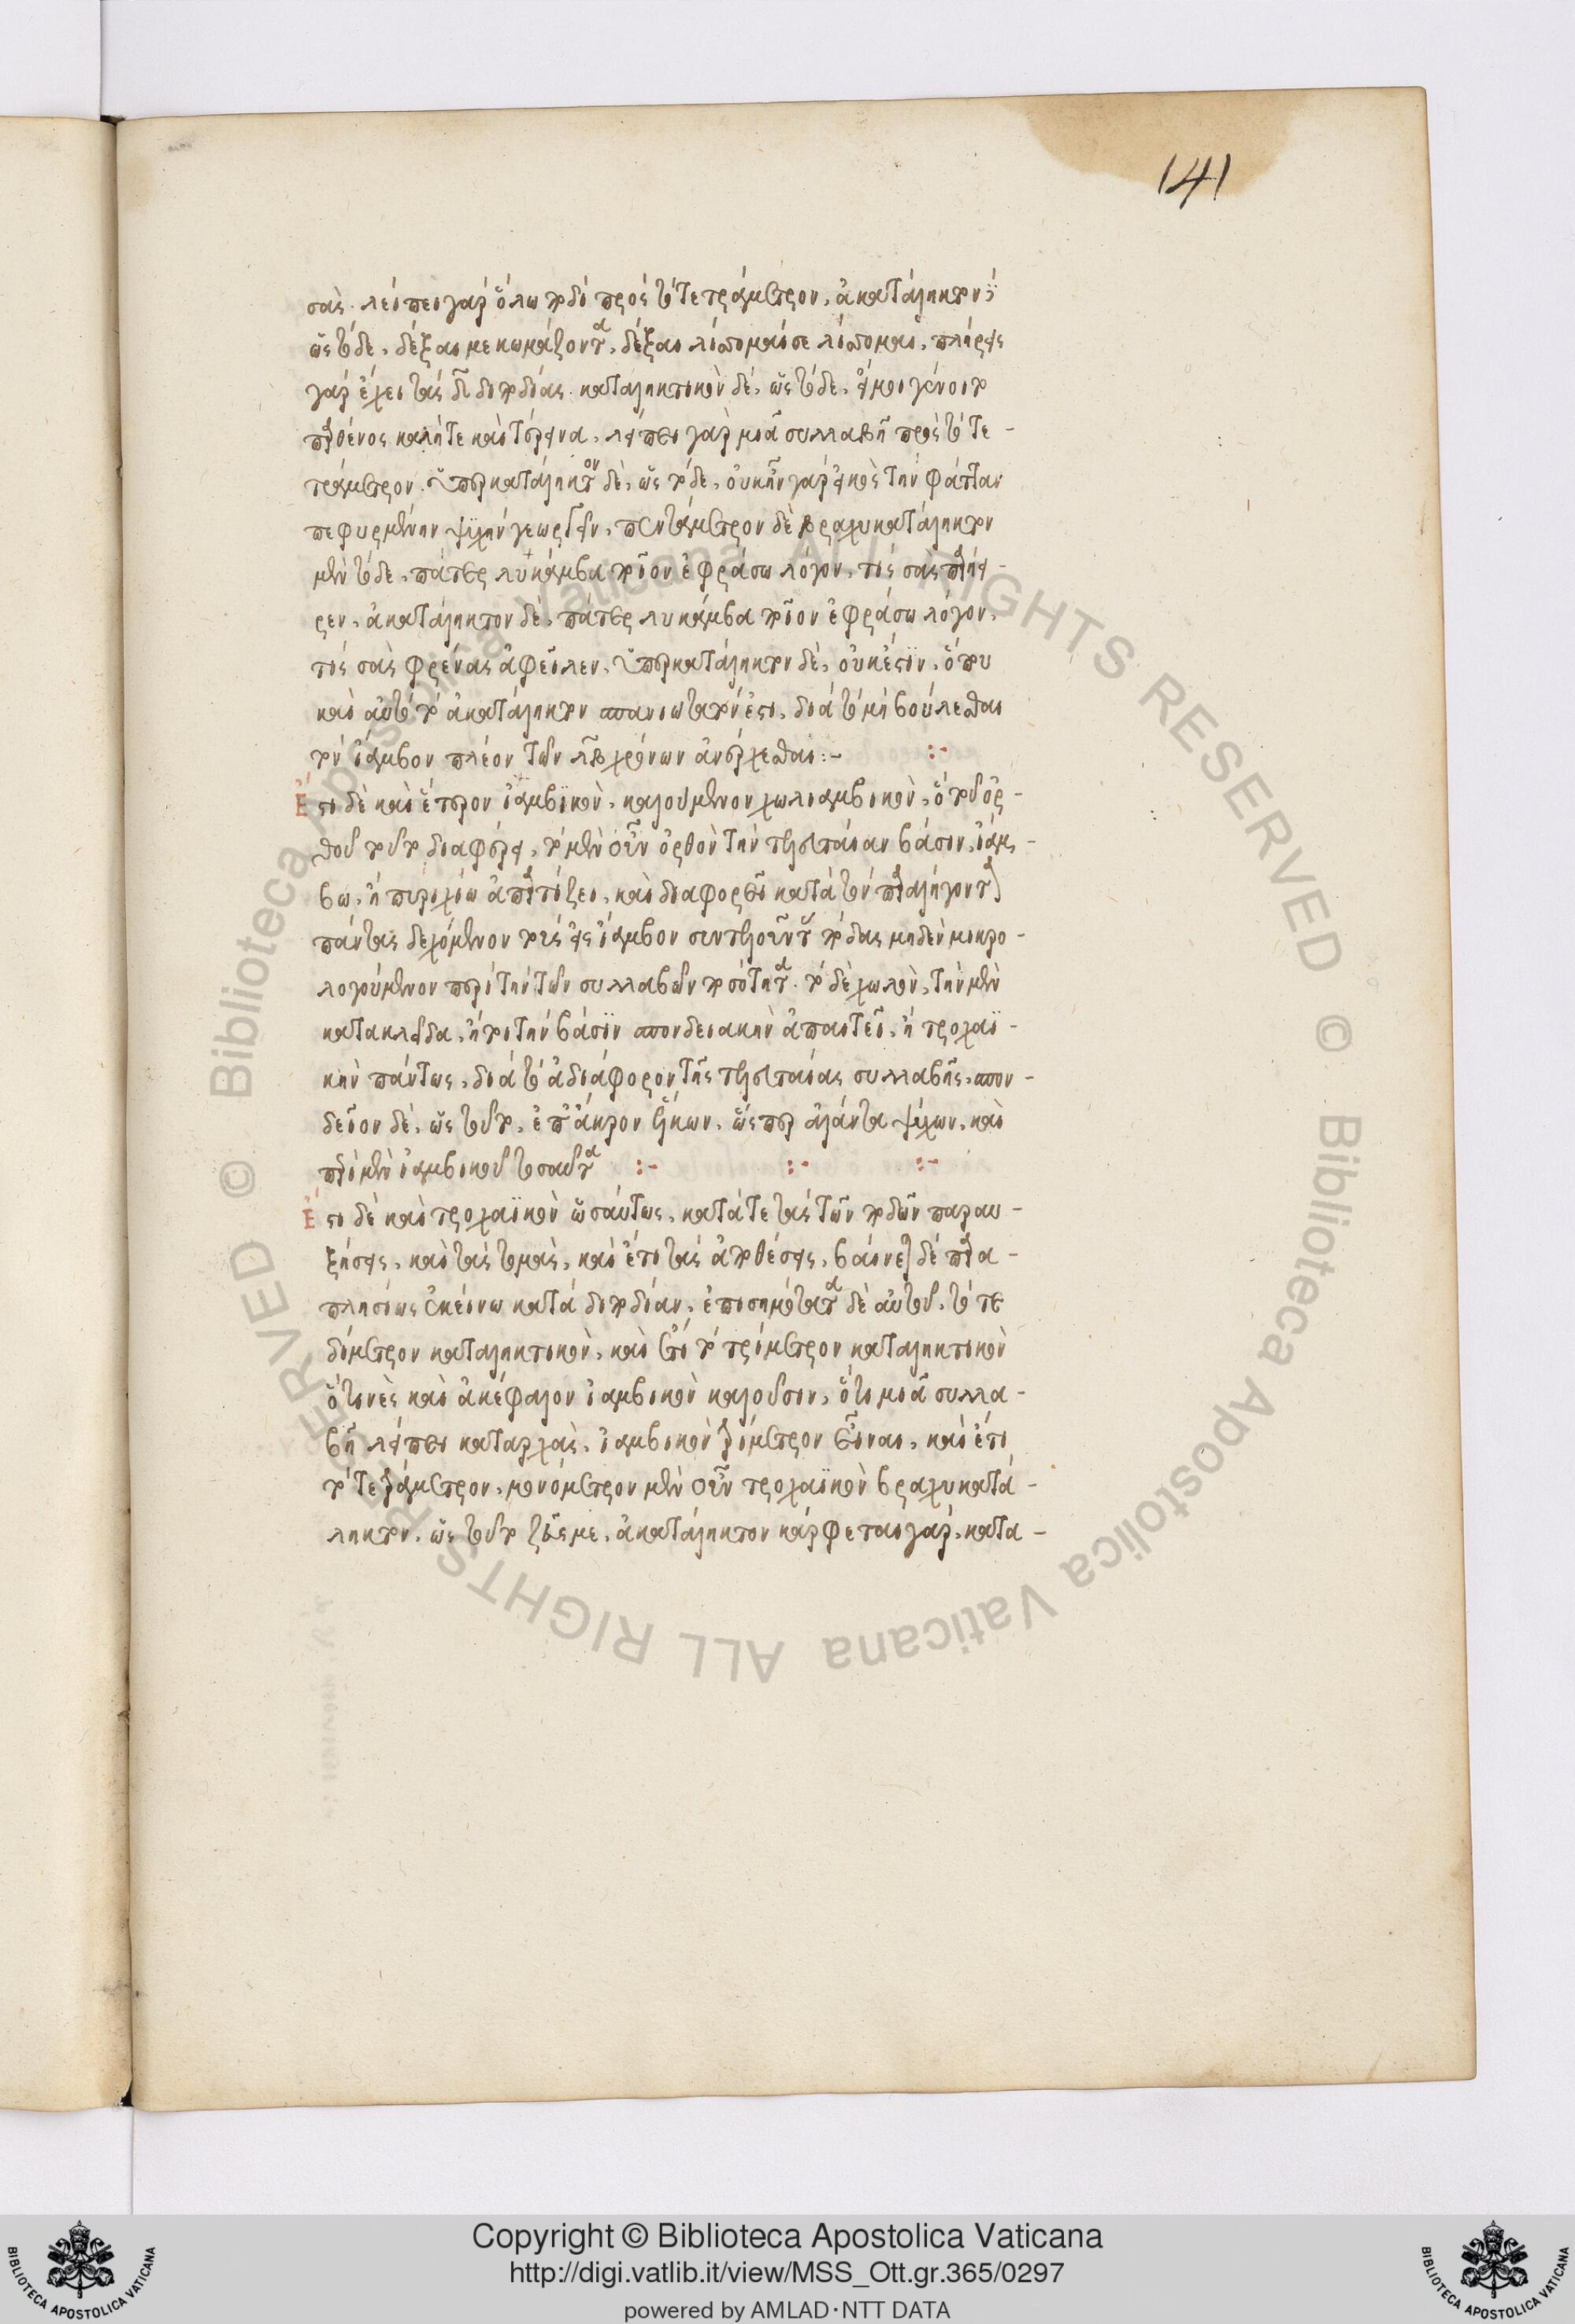 141
σας. λείπει γὰρ ὅλω ποδὶ πρὸς τὸ τετράμετρον, ἀκατάληκτον
ὡς τὸ δὲ, δέξαι με κωμάζοντα, δέξαι λίσσομαί σε λίσσομαι, πλήρεις
γὰρ ἔχει τὰς δ διποδίας. καταληκτικὸν δὲ, ὡς τὸ δὲ, εἴ μοι γένοιτο
παρθένος καλή τε καὶ τέρεινα, λείπει γὰρ μιᾷ συλλαβῇ πρὸς τὸ τε-
τράμετρον. ὑπερκατάληκτον δὲ, ὡς τὸ δε, οὐκῆν γὰρ εἰκὸς τὴν
πεφυρμένην ψιλὴν γεωργεῖν, πεντάμετρον δὲ βραχυκατάληκτον
μὲν τόδε, πάτερ λυκάμβα ποῖον ἐφράσω λόγον, τίς σὰς παρήει-
ρεν, ἀκατάληκτον δὲ, πάτερ λυκάμβα ποῖον ἐφράσω λόγον,
τίς σὰς φρένας ἀφεῖλεν, ὑπερκατάληκτον δὲ, οὐκ ἔστιν, ὅπου
καὶ αὐτὸ τὸ ἀκατάληκτον σπανιώτατόν ἐστι, διὰ τὸ μὴ βούλεσθαι
τὸν ἴαμβον πλέον τῶν λβ χρόνων ἀνέρχεσθαι :-
Ἔστι δὲ καὶ ἕτερον ἰαμβικὸν, καλούμενον χωλιαμβικὸν, ὃ τοῦ ὀρ-
θοῦ τούτω διαφέρει, τὸ μὲν οὖν ὀρθὸν τὴν τελευταίαν βάσιν, ἰάμ-
βω, ἢ πυριχίω ἀπαρτίζει, καὶ διαφορεῖ κατὰ τὸν παραλήγοντα
πάντας δεχόμενον τοὺς εἰς ἴαμβον συντελοῦντας πόδας μηδὲν μικρο-
λογούμενον περὶ τὴν τῶν συλλαβῶν ποσότητα. τὸ δὲ χωλὸν, τὴν μὲν
κατακλεῖδα, ἤτοι τὴν βάσιν σπονδειακὴν ἀπαιτεῖ, ἢ τροχαϊ-
κὴν πάντως, διὰ τὸ ἀδιάφορον τῆς τελευταίας συλλαβῆς, σπον-
δεῖον δὲ, ὡς τοῦτο, ἐπ' ἄκρον ἕλκων, ὥσπερ ἀλάντα ψύχων, καὶ
περὶ μὲν ἰαμβικοῦ τοσαῦτα :-
Ἔστι δὲ καὶ τροχαϊκὸν ὡσαύτως, κατά τε τὰς τῶν ποδῶν παραυ-
ξήσεις, καὶ τὰς τομὰς, καὶ ἔτι τὰς ἀποθέσεις, βαίνεται δὲ παρα-
πλησίως ἐκείνω κατὰ διποδίαν, ἐπισημότατα δὲ αὐτοῦ, τό τε
δίμετρον καταληκτικὸν, καὶ ἔτι τὸ τρίμετρον καταληκτικὸν
ὅ τινὲς καὶ ἀκέφαλον ἰαμβικὸν καλοῦσιν, ὅτι μιᾷ συλλα-
βῇ λείπει καταρχὰς, ἰαμβικὸν τρίμετρον εἶναι, καὶ ἔτι
τὸ τετράμετρον, μονόμετρον μὲν οὖν τροχαϊκὸν βραχυκατά-
ληκτον, ὡς τοῦτο ζεῦς με, ἀκατάληκτον κάρφεται γὰρ, κατα-
Copyright © Biblioteca Apostolica Vaticana
http://digi.vatlib.it/view/MSS_Ott.gr.365/0297
powered by AMLAD·NTT DATA